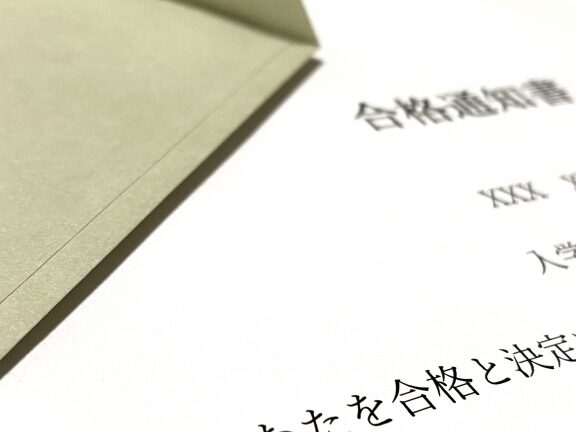 合格通知書
XXX
入学
なたを合格と決定